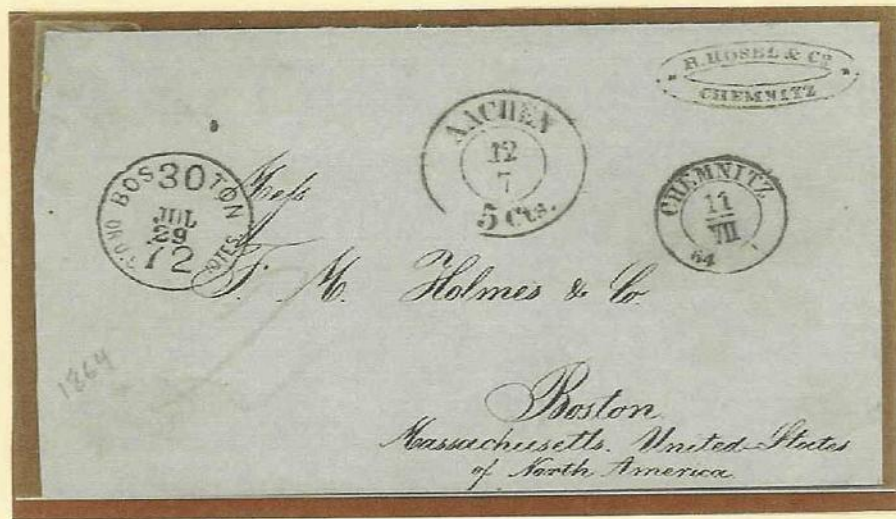 B. HÖSEL & Cº
CHEMNITZ
AACHEN
12
7
5 Cts.
CHEMNITZ
11
VII
64
BOSTON
30
JUL
29
72
OR U.S. NOTES
Mess
F. M. Holmes & Co.
Boston
Massachusetts. United-States
of North America.
1864